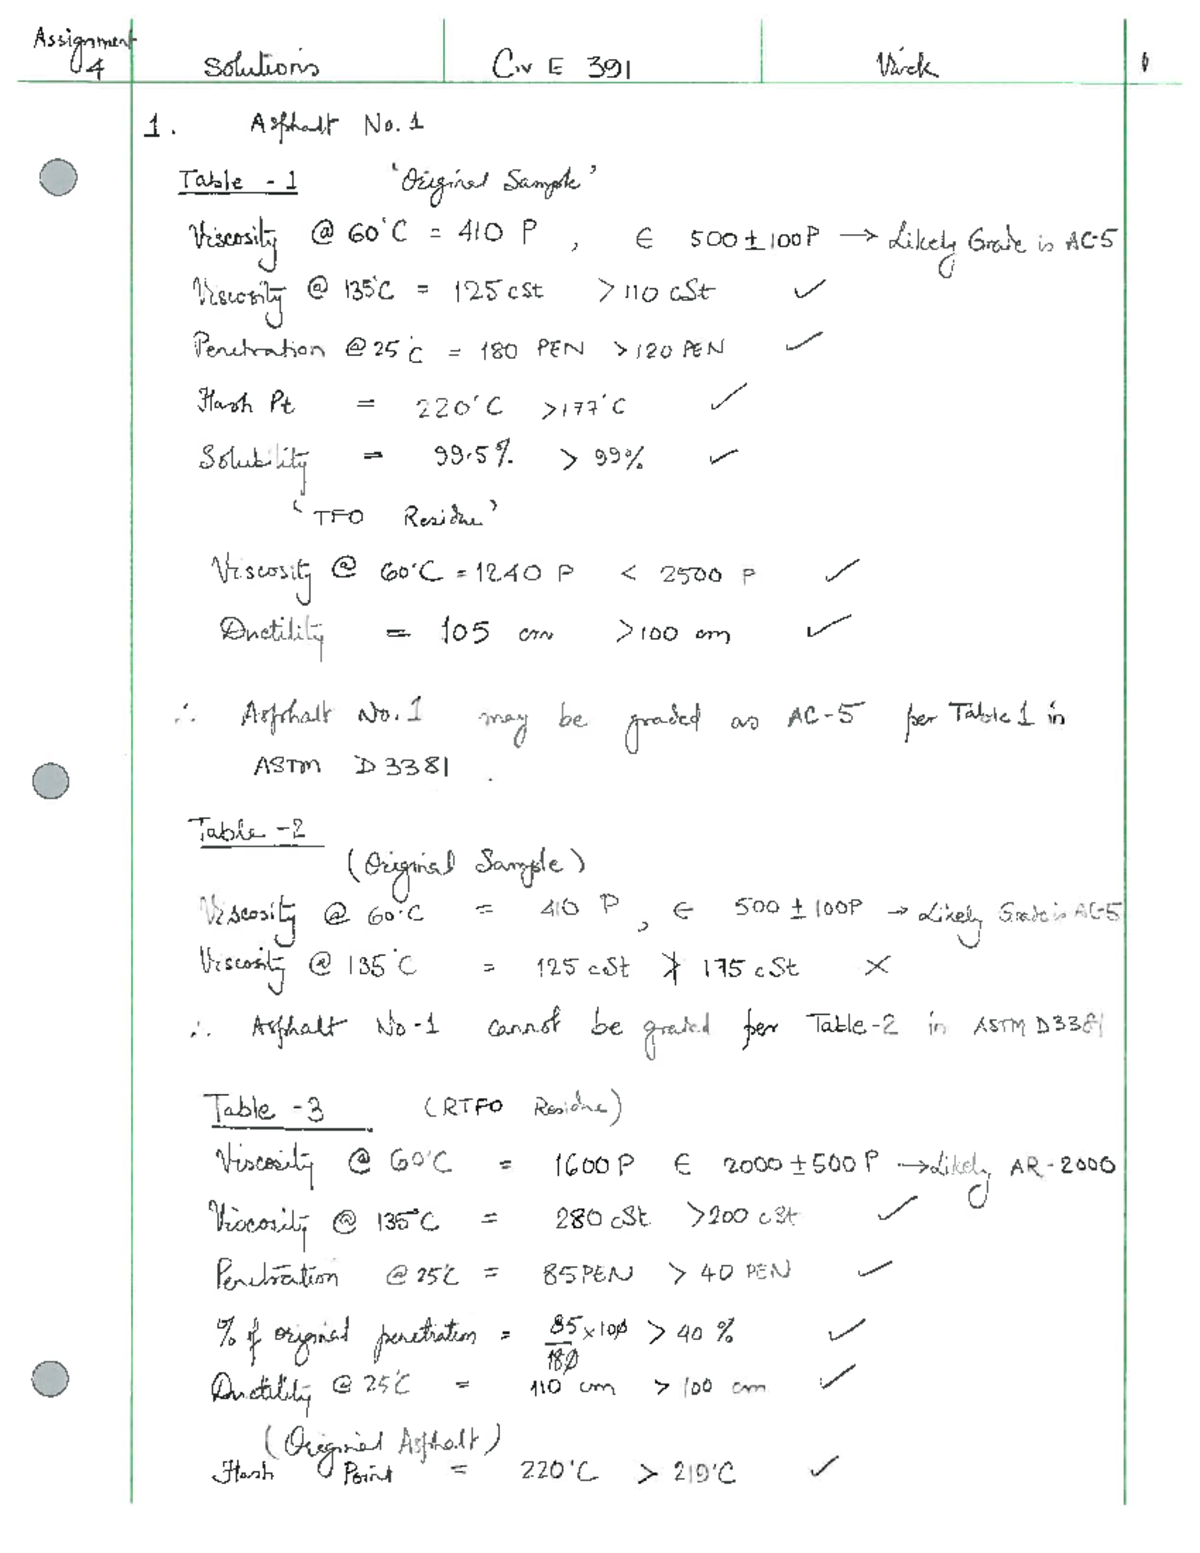 Assignment
4 Solutions Civ E 391 Virck 1
1. Asphalt No. 1
Table - 1 'Original Sample'
Viscosity @ 60°C = 410 P , ∈ 500 ± 100 P → Likely Grade is AC-5
Viscosity @ 135°C = 125 cSt > 110 cSt ✓
Penetration @ 25°C = 180 PEN > 120 PEN ✓
Flash Pt = 220°C > 177°C ✓
Solubility = 99.5% > 99% ✓
'TFO Residue'
Viscosity @ 60°C = 1240 P < 2500 P ✓
Ductility = 105 cm > 100 cm ✓
∴ Asphalt No. 1 may be graded as AC-5 per Table 1 in
ASTM D 3381 .
Table - 2
(Original Sample)
Viscosity @ 60°C = 410 P , ∈ 500 ± 100P → Likely Grade is AC-5
Viscosity @ 135°C = 125 cSt ≯ 175 cSt ✗
∴ Asphalt No-1 cannot be graded per Table-2 in ASTM D3381
Table - 3 (RTFO Residue)
Viscosity @ 60°C = 1600 P ∈ 2000 ± 500 P → Likely AR-2000
Viscosity @ 135°C = 280 cSt > 200 cSt ✓
Penetration @ 25°C = 85 PEN > 40 PEN ✓
% of original penetration = 85/180 × 100 > 40 % ✓
Ductility @ 25°C = 110 cm > 100 cm ✓
(Original Asphalt)
Flash Point = 220°C > 219°C ✓